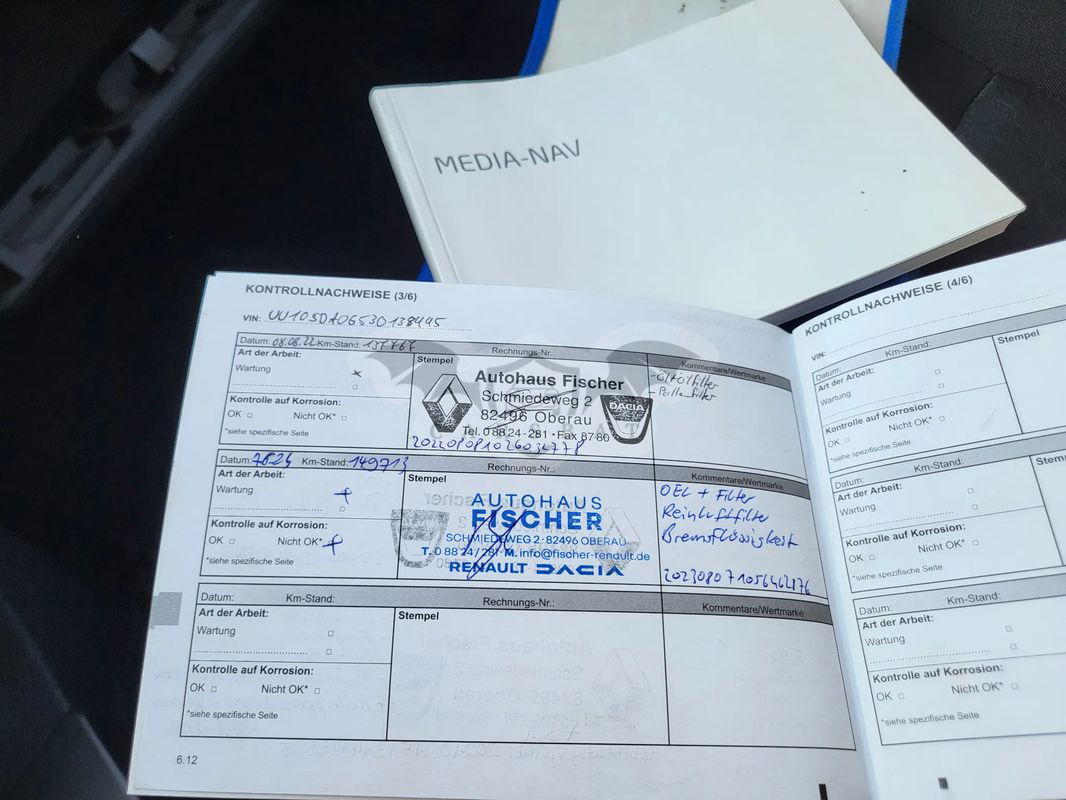 MEDIA-NAV
KONTROLLNACHWEISE (3/6)
VIN: UU10SDA06530138445
Datum: 08.08.22 Km-Stand: 137767 Rechnungs-Nr.: Kommentare/Wertmarke
Art der Arbeit:
Wartung
Kontrolle auf Korrosion:
OK Nicht OK*
*siehe spezifische Seite
Stempel
Autohaus Fischer
Schmiedeweg 2
82496 Oberau
Tel. 0 88 24 - 281 • Fax 87 80
DACIA
- Öl + Ölfilter
- Pollenfilter
Datum: Km-Stand: 149713 Rechnungs-Nr.: Kommentare/Wertmarke
Art der Arbeit:
Wartung
Kontrolle auf Korrosion:
OK Nicht OK*
*siehe spezifische Seite
Stempel
AUTOHAUS
FISCHER
SCHMIEDEWEG 2 · 82496 OBERAU
T. 0 88 24 / 281 · M. info@fischer-renault.de
RENAULT DACIA
OEL + Filter
Reinluftfilter
Bremsflüssigkeit
Datum: Km-Stand: Rechnungs-Nr.: Kommentare/Wertmarke
Art der Arbeit:
Wartung
Kontrolle auf Korrosion:
OK Nicht OK*
*siehe spezifische Seite
Stempel
6.12
KONTROLLNACHWEISE (4/6)
VIN:
Datum: Km-Stand:
Art der Arbeit:
Wartung
Kontrolle auf Korrosion:
OK Nicht OK*
*siehe spezifische Seite
Stempel
Datum: Km-Stand:
Art der Arbeit:
Wartung
Kontrolle auf Korrosion:
OK Nicht OK*
*siehe spezifische Seite
Datum: Km-Stand:
Art der Arbeit:
Wartung
Kontrolle auf Korrosion:
OK Nicht OK*
*siehe spezifische Seite